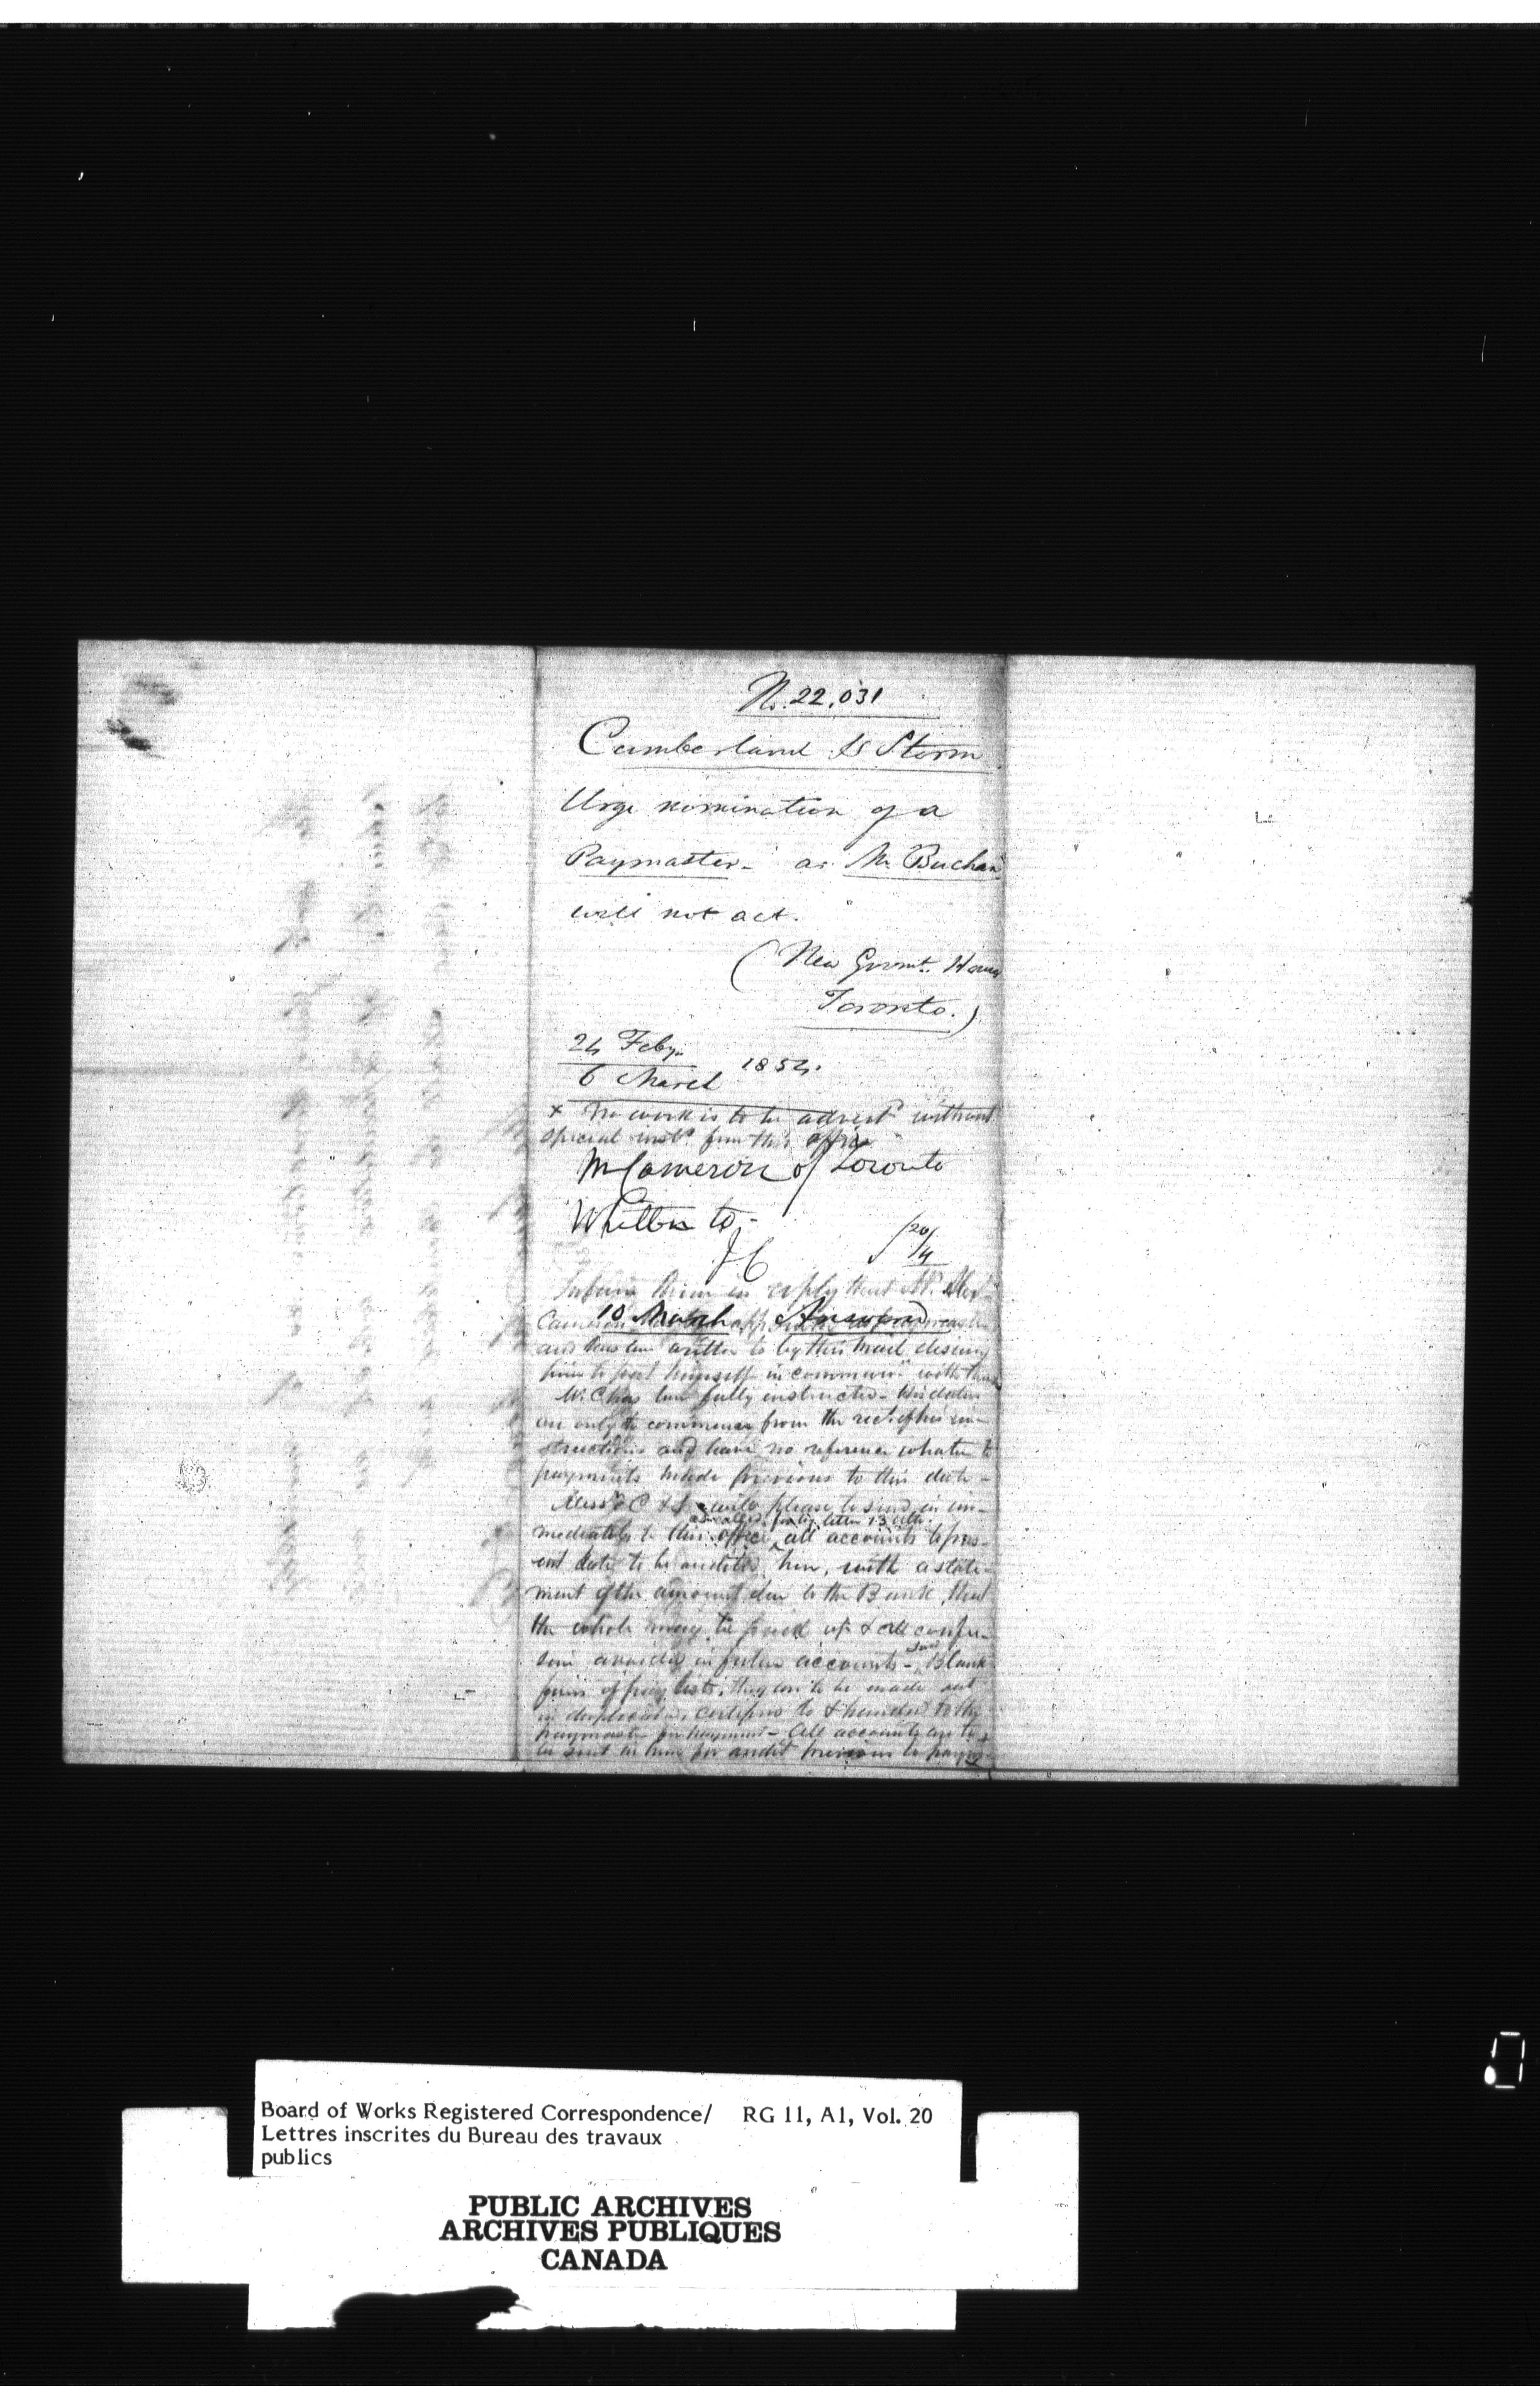 No. 22,031
Cumberland & Storm
Urge nomination of a
Paymaster - as Mr. Buchan
will not act.
(New Govmt. House
Toronto.)
24 Feby.
6 March 1854.
x No work is to be without
special inst. from this office
M Cameron of Toronto
Written to,-
JC 20/4
Inform them in reply that Mr.
10 March Answered
Cameron
and has been written to by this mail
him to put himself in with them
Mr. C has been fully instructed - His duties
are only to commence from the rect. of his in-
structions and have no reference whatever to
payments made previous to this date -
Messrs C & S will please to send in im-
as called for by letter 13 ulto.
mediately to this office ^ all accounts to pres-
ent date to be audited here, with a state-
ment of the amount due to the Bank, that
the whole may be paid up & all confu-
sion avoided in future accounts - send Blank
forms of pay lists, they are to be made out
in duplicate, certified to & handed to the
paymaster for payment - All accounts are to
be sent in here for audit previous to
Board of Works Registered Correspondence/ RG 11, A1, Vol. 20
Lettres inscrites du Bureau des travaux
publics
PUBLIC ARCHIVES
ARCHIVES PUBLIQUES
CANADA